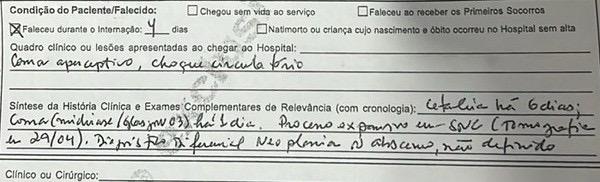 Condição do Paciente/Falecido: Chegou sem vida ao serviço Faleceu ao receber os Primeiros Socorros
X Faleceu durante o Internação: 4 dias Natimorto ou criança cujo nascimento e óbito ocorreu no Hospital sem alta
Quadro clínico ou lesões apresentadas ao chegar ao Hospital:
Coma aperceptivo, choque circulatório
Síntese da História Clínica e Exames Complementares de Relevância (com cronologia): cefaleia há 6 dias;
Coma (midríase/Glasgow 03) há 1 dia. Processo expansivo em SNC (Tomografia
em 29/04). Diagnóstico Diferencial Neoplasia abscesso, não definido
Clínico ou Cirúrgico: